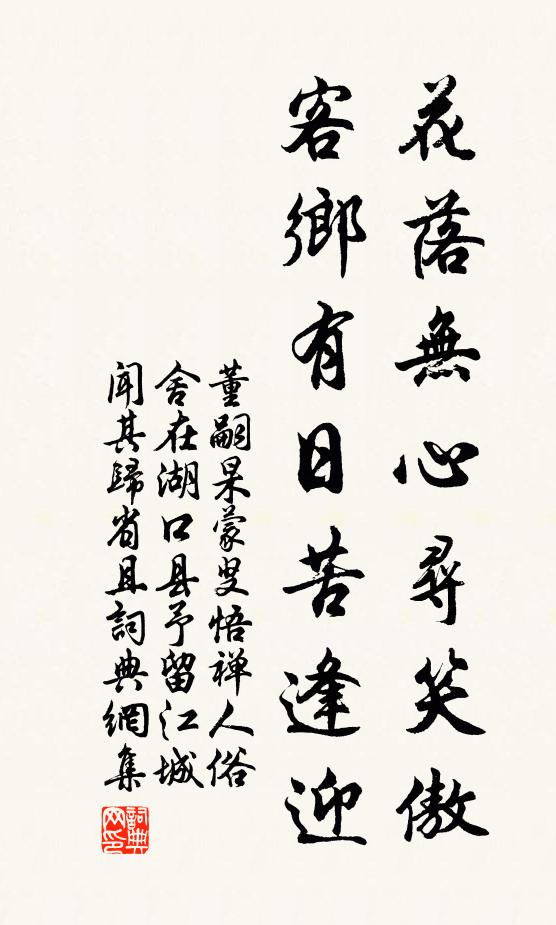 花落無心尋笑傲
客鄉有日苦逢迎
董嗣杲蒙叟悟禅人俗
舍在湖口县予留江城
闻其歸省且詞典網集
詞典
网印